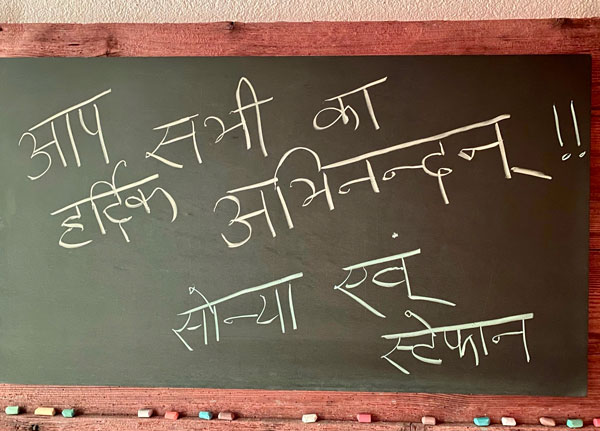 आप सभी का
हर्दिक अभिनन्दन् !!
सोन्या एवं
स्टेफान